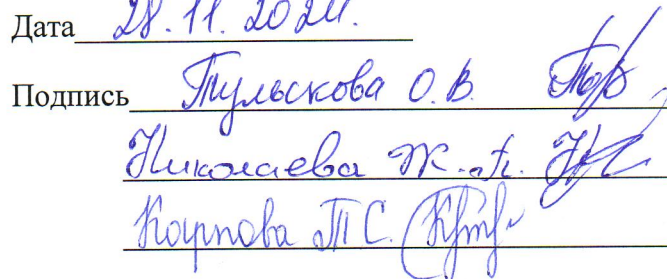 Дата 28.11.2024.
Подпись Тульскова О.В.
Николаева Ж.А.
Карпова Т.С.